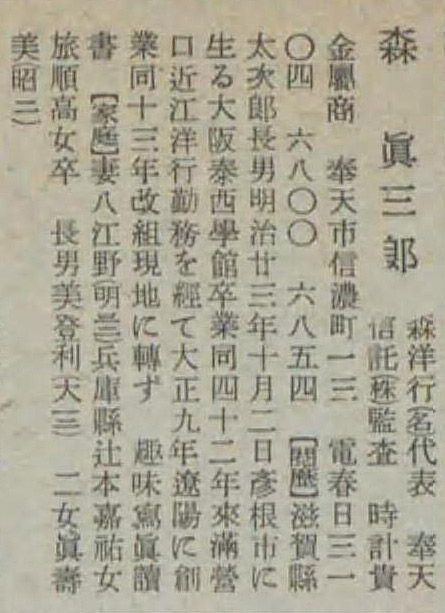 森眞三郎
森洋行(名)代表 奉天
信託(株)監査 時計貴
金屬商 奉天市信濃町一三 電春日三一
〇四 六八〇〇 六八五四 【閱歷】滋賀縣
太次郎長男明治廿三年十月二日彥根市に
生る大阪泰西學館卒業同四十二年來滿營
口近江洋行勤務を經て大正九年遼陽に創
業同十三年改組現地に轉ず 趣味寫眞讀
書 【家庭】妻八江野(明三三)兵庫縣辻本嘉祐女
旅順高女卒 長男美登利(大三) 二女眞壽
美昭二)